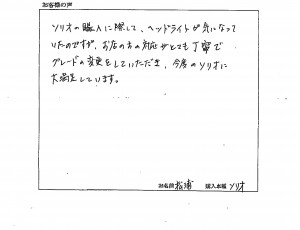 お客様の声
ソリオの購入に際して、ヘッドライトが気になって
いたのですが、お店の方の対応がとても丁寧で
グレードの変更をしていただき、今度のソリオに
大満足しています。
お名前 松浦 購入車種 ソリオ